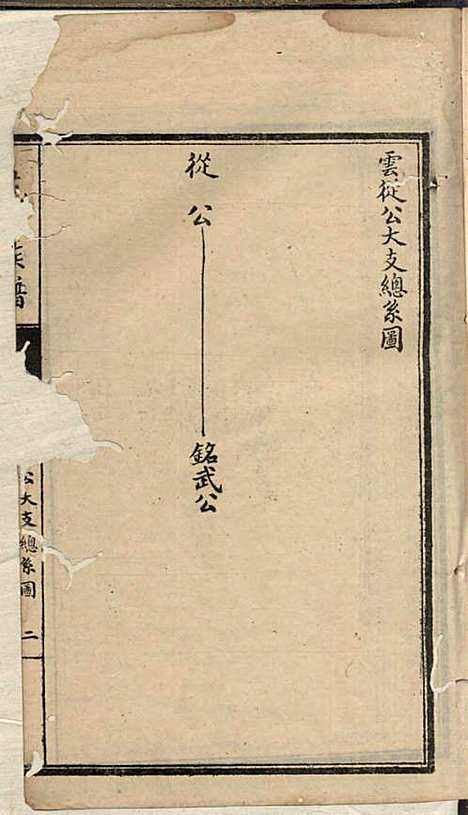 雲從公大支總系圖
從公
銘武公
族譜
公大支總系圖 二